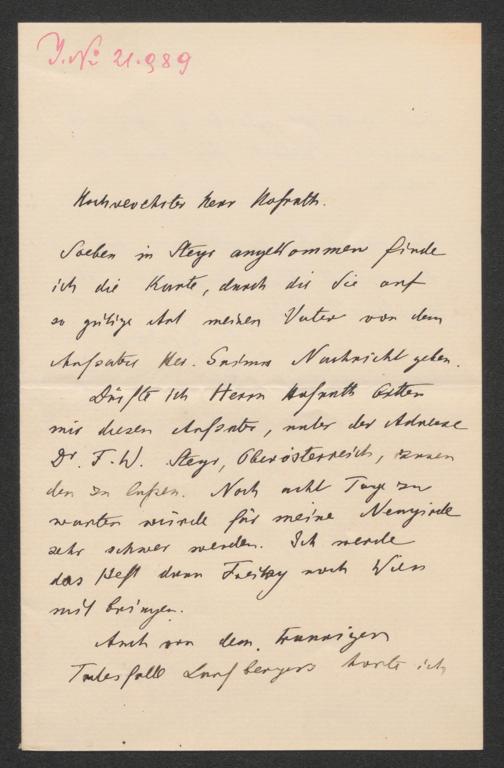 J. No 21.989
Hochverehrter Herr Hofrath.
Soeben in Steyr angekommen finde
ich die Karte, durch die Sie auf
so gütige Art meinen Vater von dem
Aufsatze Her. Grimms Nachricht geben.
Dürfte ich Herrn Hofrath bitten
mir diesen Aufsatz, unter der Adresse
Dr. F. W. Steyr, Oberösterreich, zusen
den zu lassen. Noch acht Tage zu
warten würde für meine Neugirde
sehr schwer werden. Ich werde
das Heft dann Freitag nach Wien
mit bringen.
Auch von dem traurigen
Todesfall Laufbergers hörte ich